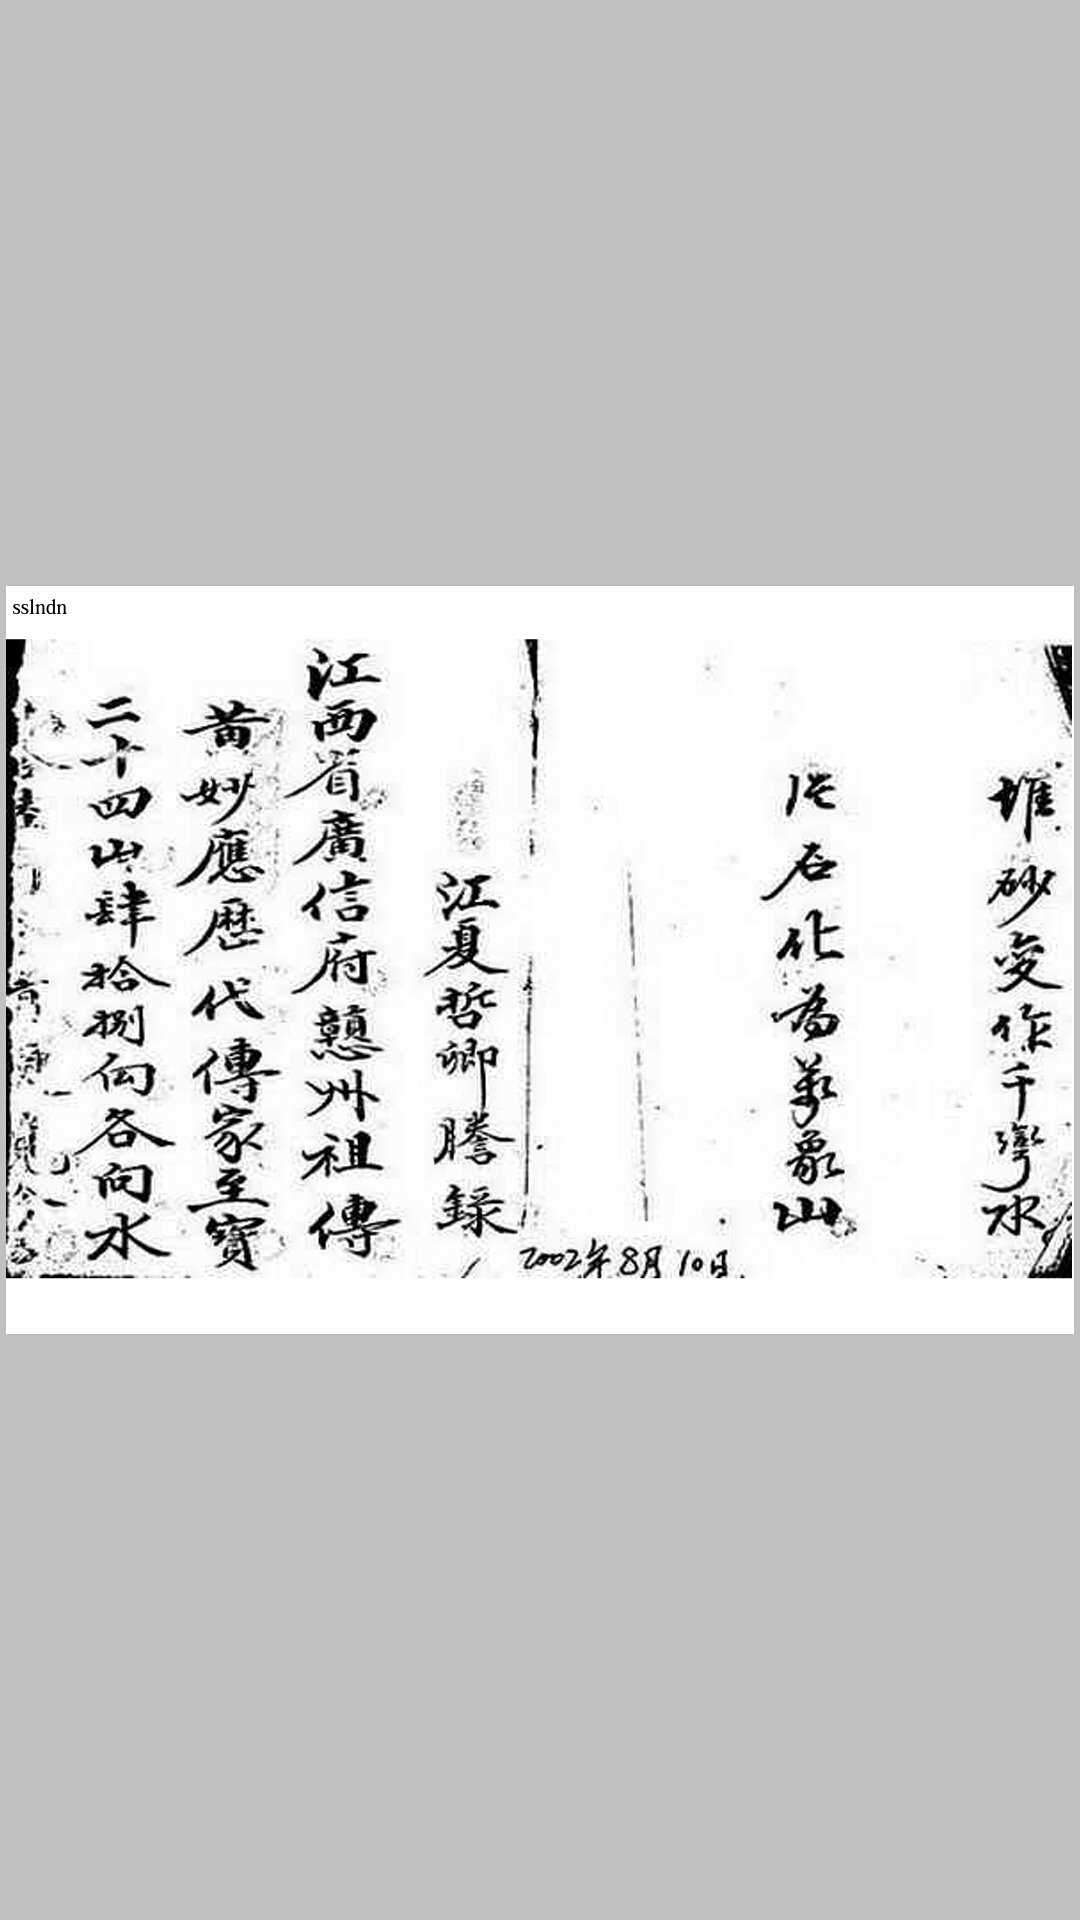 sslndn
堆砂变作千彎水
片石化為萬象山
江夏哲卿謄錄
江西省廣信府戇州祖傳
黃妙應歷代傳家至寶
二十四山肆拾捌向各向水
2002年8月10日